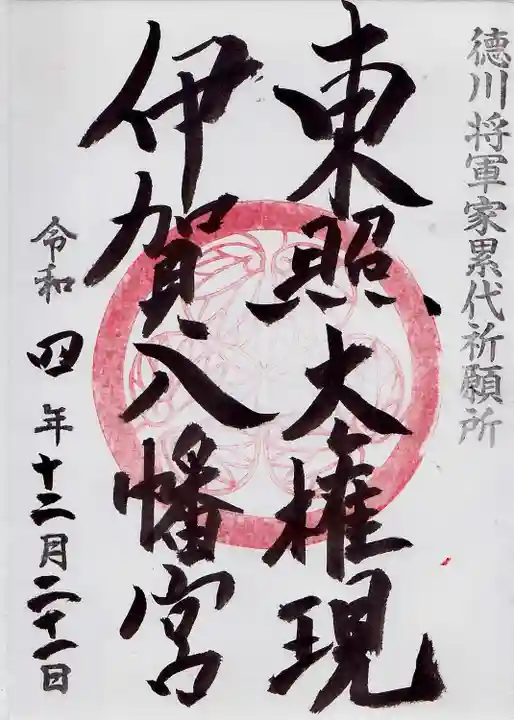 徳川将軍家累代祈願所
東照大権現
伊賀八幡宮
令和四年十二月二十一日